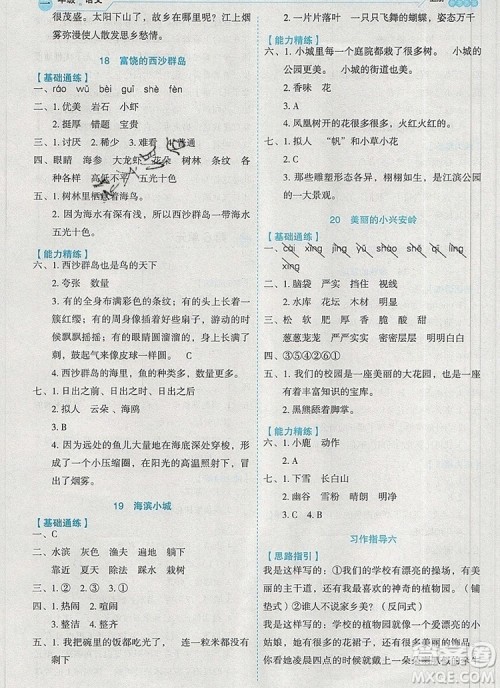 很茂盛。太阳下山了，故乡在夕阳的照射下，红红的，
烟雾弥漫使人散发思乡愁情。
18 富饶的西沙群岛
【基础通练】
一、
二、1. 优美 岩石 小虾
2. 挺厚 错题 宝贝
三、1. 讨厌 2. 稀少 3. 难看 4. 普通
四、眼睛 海参 大龙虾 花朵 树林 条纹 各
种各样 高低不平 五光十色
五、1. 树林里栖息着许多鸟儿。
2. 因为海水有深有浅，所以西沙群岛一带海水
五光十色。
【能力精练】
六、1. 西沙群岛也是鸟的天下
2. 夸张 数量
3. 有的全身布满彩色的条纹；有的头上长着一
簇红缨；有的周身像插着好些扇子，游动的时
候飘飘摇摇；有的眼睛圆溜溜的，身上长满了
刺，鼓起气来像皮球一样圆。
4. 西沙群岛的海里，鱼的种类和数量多。
七、1. 日出之前、日出之时、日出之后
2. 拟人 云朵 海鸥
3. ①
4. 因为跳跃的鱼儿大口呼吸，每个气泡构成了
一个小压缩圈，在阳光的高温照射下，可以形
成了烟雾。
19 海滨小城
【基础通练】
二、水滨 灰色 渔民 遍地 躺下
靠近 夏天 除法 踩踏 洁白
三、1. ① ② 2. ② 3. ①
四、1. 热闹 2. 喧闹
3. 整洁 4. 干净
五、1. 我把碗里的饭吃光了， 连一粒米都没有
剩下。
2. 一片片落叶 一只只美丽的蝴蝶，姿态万千
【能力精练】
六、1. 小城里每一个庭院都栽了很多树。 小城
的公园更美。 小城的街道也美。
2. 香味 花
3. ①
4. 凤凰树开了花，开得那么热闹，火红火红的。
七、1. ②
2. 拟人 “帆”和小草小花
3. ①
4. 因为这些雕塑形态各异，已成为江滨公园
的一大景观。
20 美丽的小兴安岭
【基础通练】
二、1. 脑袋 严实 挡住 视线
2. 水库 花坛 显著 宝贝
三、松 软 肥 厚 香 脆 酸 甜
葱葱茏茏 严严实实 又松又软
四、③①⑤④②
五、1. 我们的校园是一座美丽的大花园，也是一
座有着丰富知识的宝库。
2. 黑熊舔着自己又肥又厚的脚掌。
【能力精练】
六、1. 小鹿 动作
2. ②
七、1. 下雪 长白山
2. 幽谷 雪片 晴朗 皑皑
3. ①
习作指导六
【思路指引】
我是这样写的：①学校里有许多漂亮的花园，有美
丽的主干道，还有我最喜欢的神奇的植物园。（铺
垫式）②谁人不喜欢我家花园呢？（反问式）
我是这样写的：学校的植物园像一个爱漂亮的小
姑娘，许多美丽的花裙子，就是她最美丽的服饰。